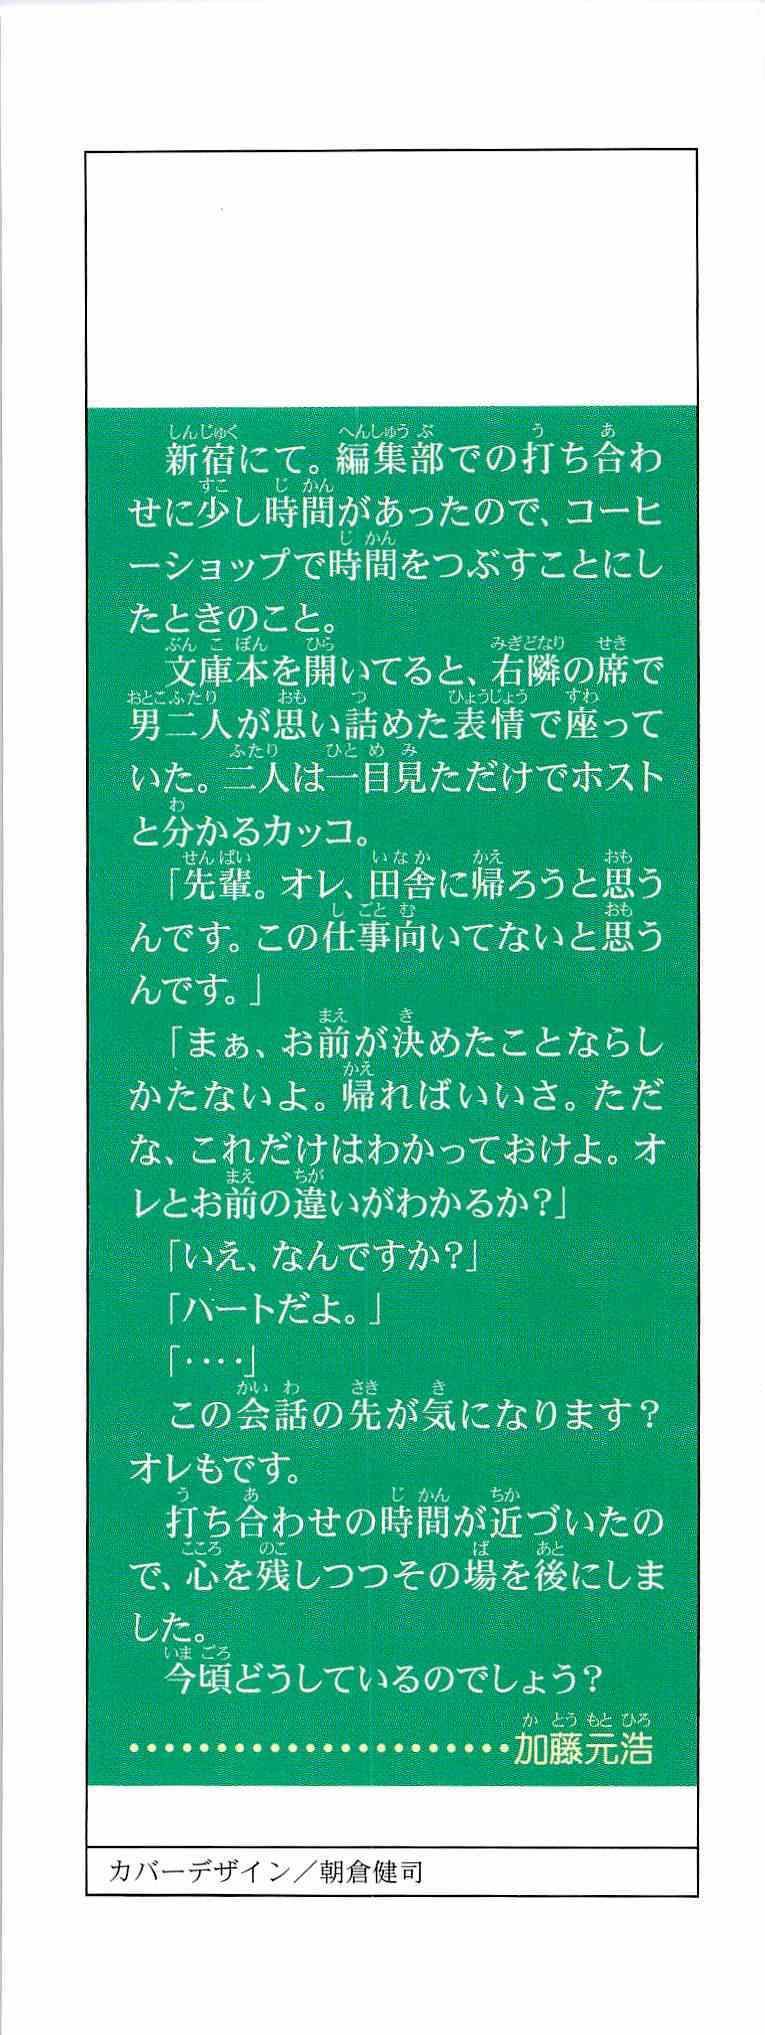 新宿にて。編集部での打ち合わ
せに少し時間があったので、コーヒ
ーショップで時間をつぶすことにし
たときのこと。
文庫本を開いてると、右隣の席で
男二人が思い詰めた表情で座って
いた。二人は一目見ただけでホスト
と分かるカッコ。
「先輩。オレ、田舎に帰ろうと思う
んです。この仕事向いてないと思う
んです。」
「まぁ、お前が決めたことならし
かたないよ。帰ればいいさ。ただ
な、これだけはわかっておけよ。オ
レとお前の違いがわかるか?」
「いえ、なんですか?」
「ハートだよ。」
「‥‥」
この会話の先が気になります?
オレもです。
打ち合わせの時間が近づいたの
で、心を残しつつその場を後にしま
した。
今頃どうしているのでしょう?
・・・・・・・・・・・・・・・・・・・・・・・加藤元浩
カバーデザイン/朝倉健司